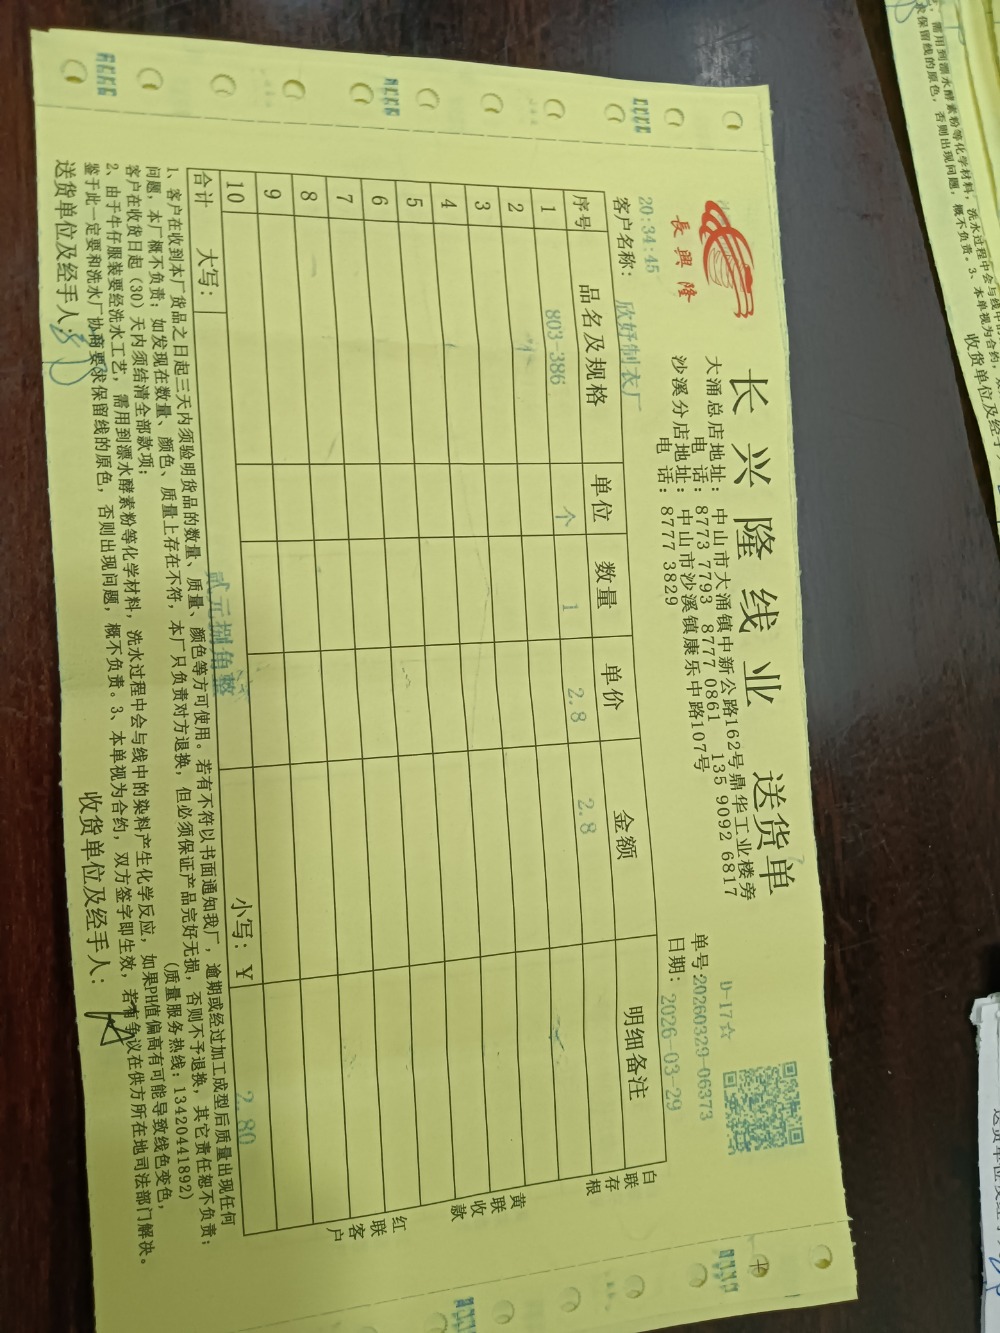 長興隆
长兴隆线业 送货单
大涌总店地址：中山市大涌镇中新公路162号鼎华工业楼旁
电 话：8773 7793 8777 0861 135 9092 6817
沙溪分店地址：中山市沙溪镇康乐中路107号
电 话：8777 3829
D-17☆
单号：20260329-06373
日期：2026-03-29
20:34:45
客户名称：欣妤制衣厂
序号 品名及规格 单位 数量 单价 金额 明细备注
1 803-386 个 1 2.8 2.8
2
3
4
5
6
7
8
9
10
合计 大写：贰元捌角整 小写：￥ 2.80
白联存根
黄联收款
红联客户
1、客户在收到本厂货品之日起三天内须验明货品的数量、质量、颜色等方可使用。若有不符以书面通知我厂，逾期或经过加工成型后质量出现任何
问题，本厂概不负责；如发现在数量、颜色、质量上存在不符，本厂只负责对方退换，但必须保证产品完好无损，否则不予退换，其它责任恕不负责；
客户在收货日起（30）天内须结清全部款项； （质量服务热线：13420441892）
2、由于牛仔服装要经洗水工艺，需用到漂水酵素粉等化学材料，洗水过程中会与线中的染料产生化学反应，如果PH值偏高有可能导致线色变色，
鉴于此一定要和洗水厂协商要求保留线的原色，否则出现问题，概不负责。3、本单视为合约，双方签字即生效，若有争议在供方所在地司法部门解决。
送货单位及经手人： 收货单位及经手人：
需用到漂水酵素粉等化学材料，洗水过程中会与线中
求保留线的原色，否则出现问题，概不负责。3、本单视为合约，
收货单位及经手